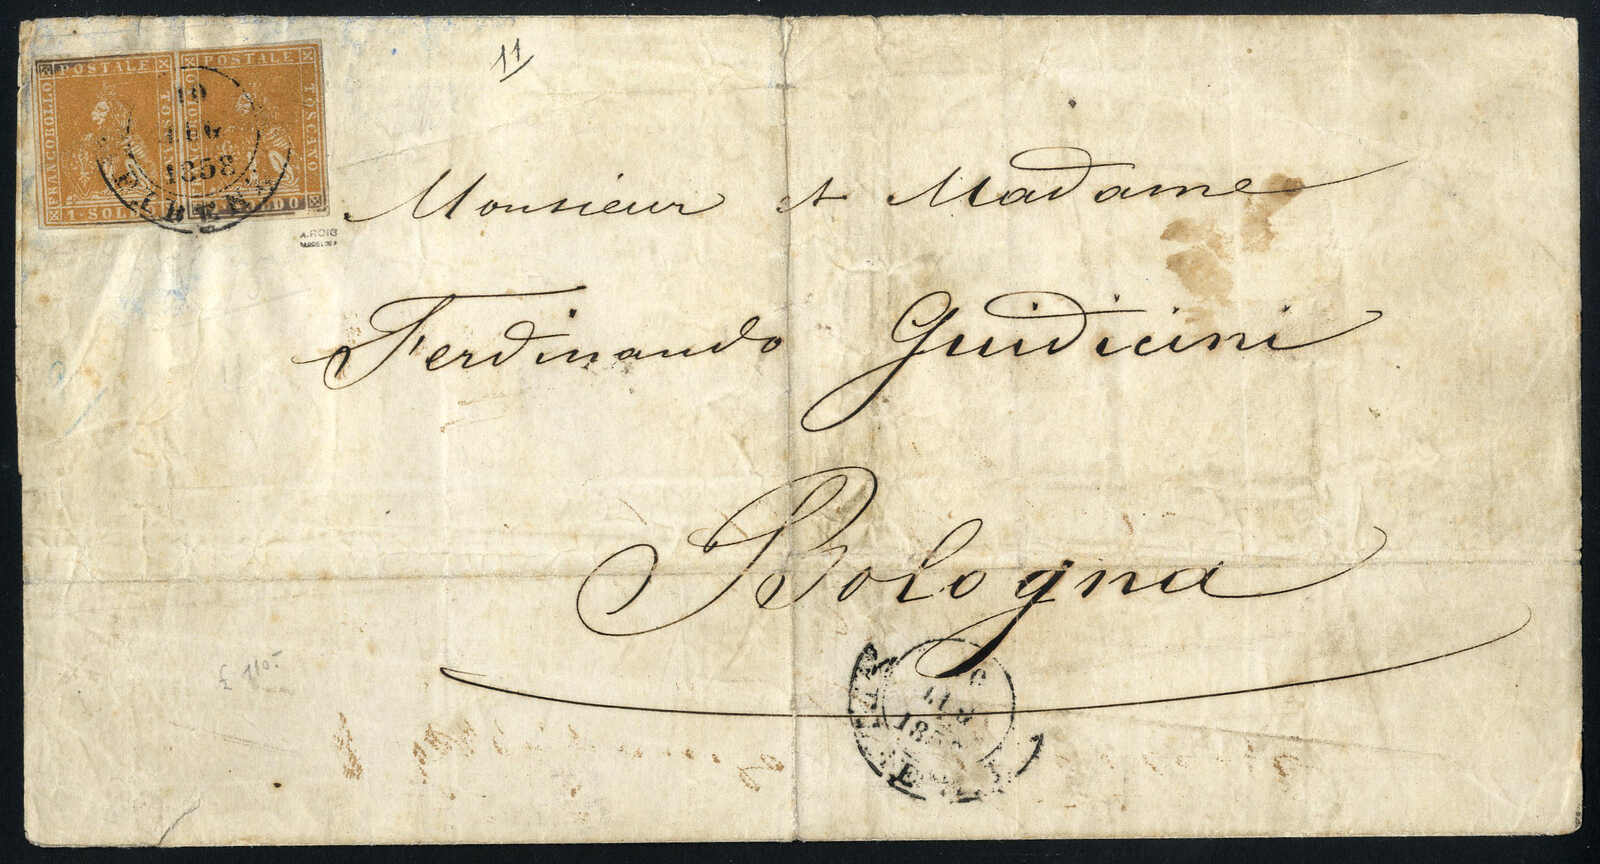 11
FRANCOBOLLO POSTALE TOSCANO
1 · SOLDO
POSTALE TOSCANO
SOLDO
10
LUG
1858
A.ROIG
Monsieur et Madame
Ferdinando Guidicini
Bologna
LUG
185
£ 110-